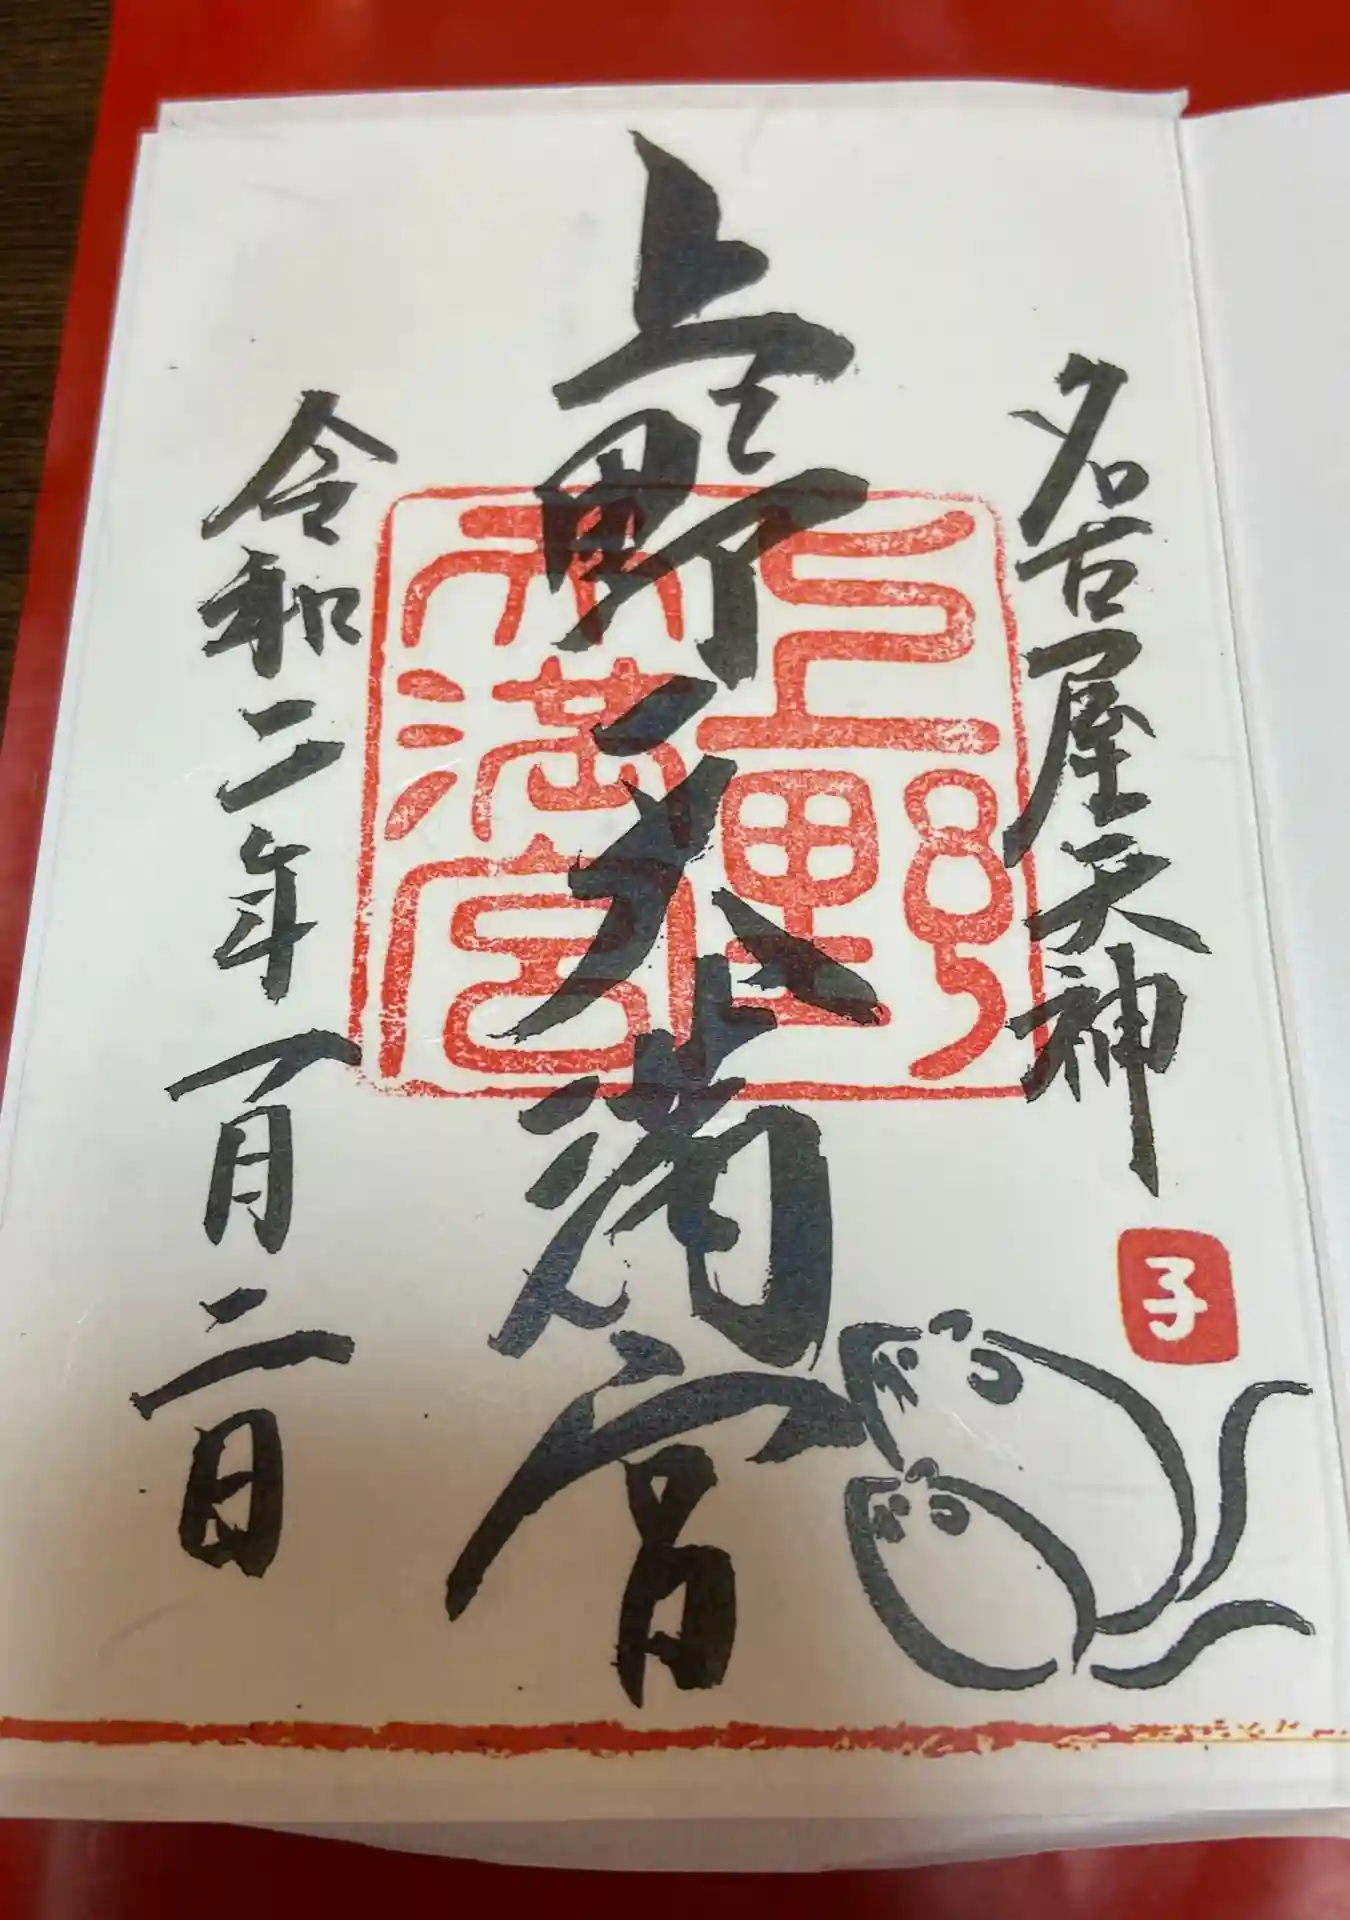 名古屋天神
子
上野天満宮
上野
天満宮
令和二年一月二日